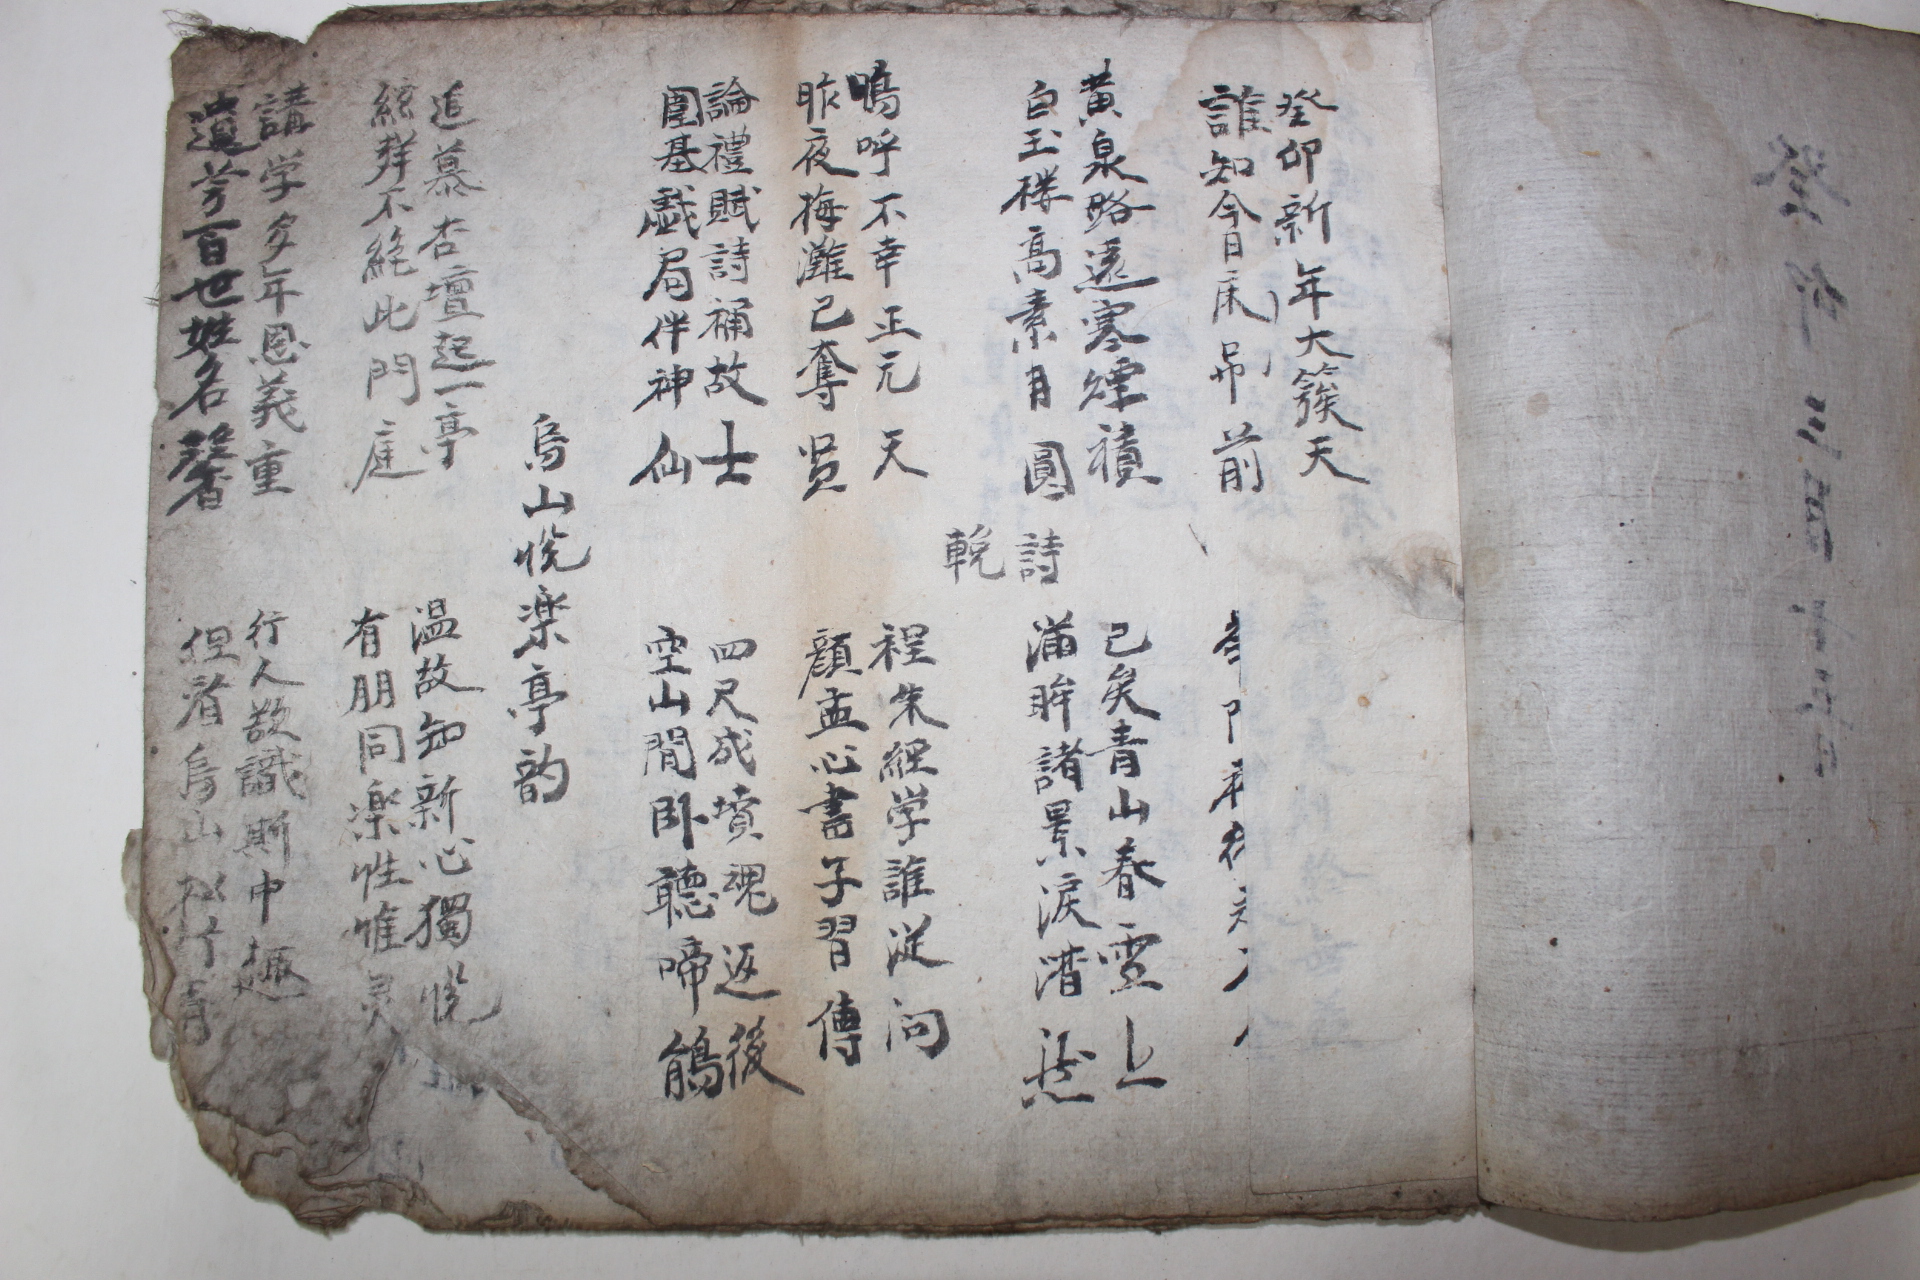 癸卯 三月十五日
癸卯新年大簇天
誰知今日床吊前
黃泉路遠寒煙積
白玉楼高素月圓
已矣青山春雲上
滿眸諸景淚潸然
輓詩
嗚呼不幸正元天
昨夜梅灘已奪賢
程朱經学誰從问
顏孟心書子習傳
論禮賦詩補故士
圍基戱局伴神仙
四尺成墳魂返後
空山閒卧聽啼鵑
烏山悅楽亭韵
追慕杏壇起一亭
群不絶此門庭
温故知新心獨悅
有朋同楽性惟灵
講学多年恩義重
遺芳百世姓名馨
行人欲識斯中趣
但看烏山松竹青